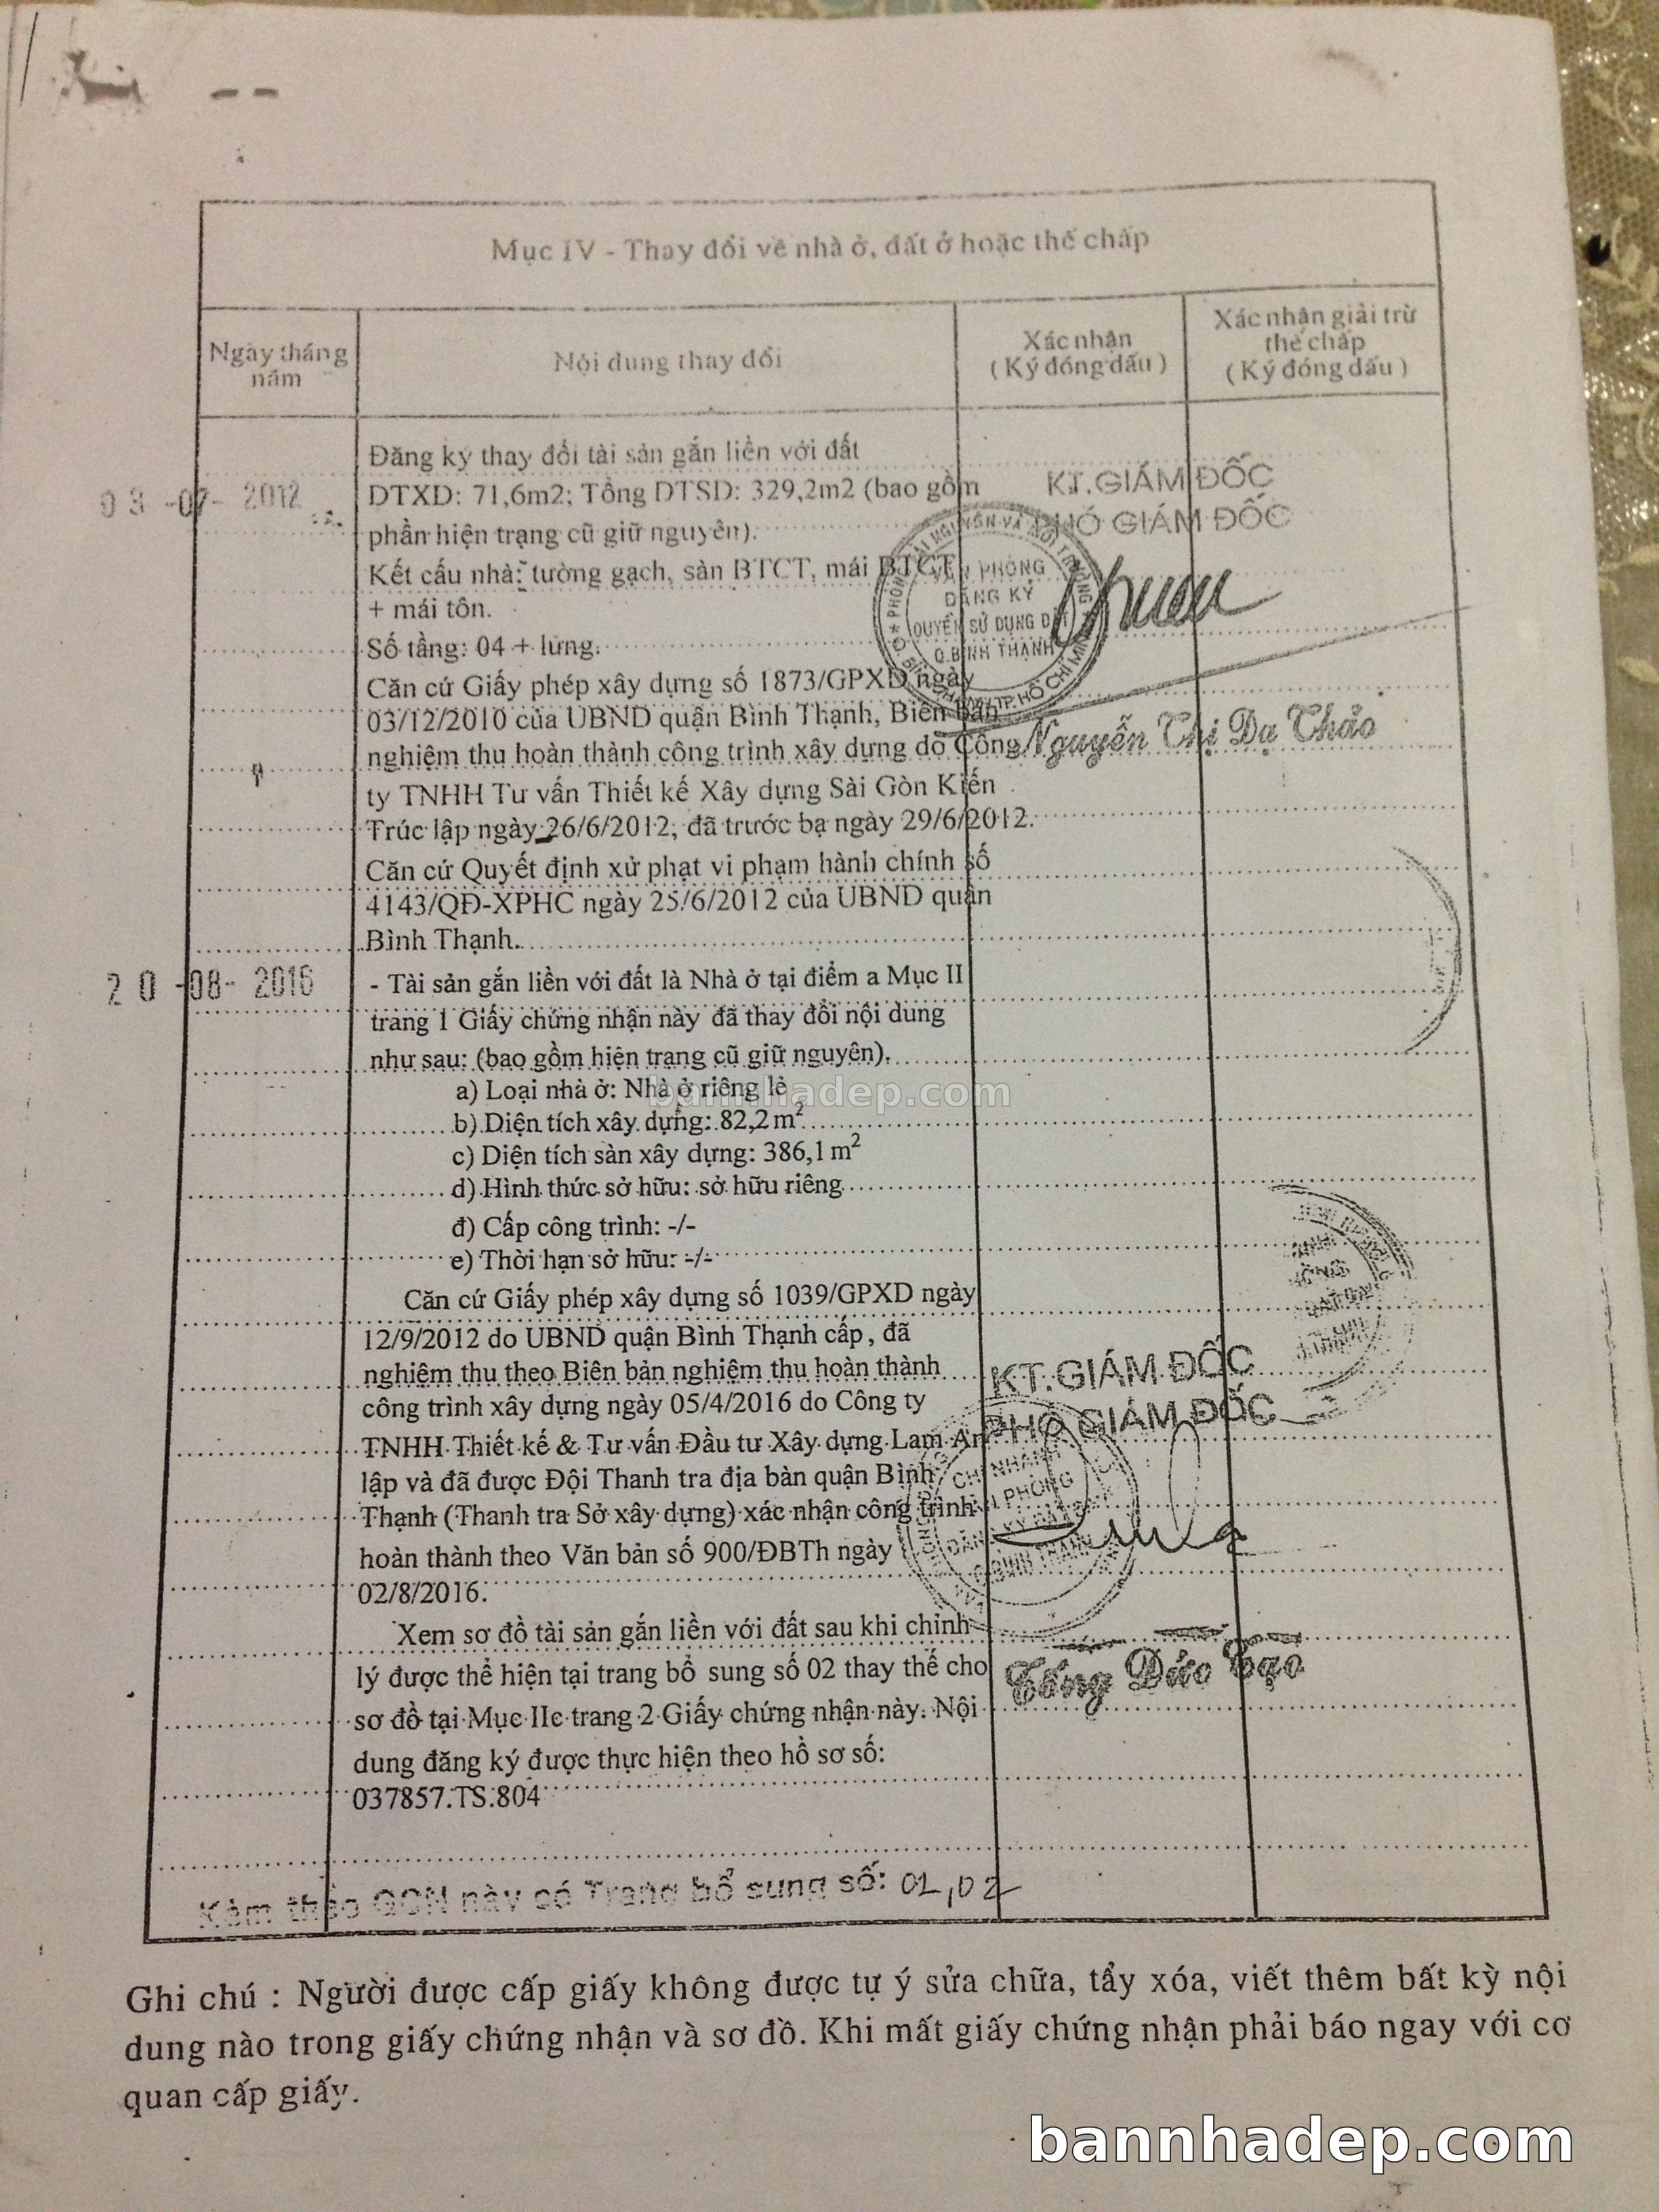 Mục IV - Thay đổi về nhà ở, đất ở hoặc thế chấp
Ngày tháng năm
Nội dung thay đổi
Xác nhận
( Ký đóng dấu )
Xác nhận giải trừ
thế chấp
( Ký đóng dấu )
03 -07- 2012
Đăng ký thay đổi tài sản gắn liền với đất
DTXD: 71,6m2; Tổng DTSD: 329,2m2 (bao gồm
phần hiện trạng cũ giữ nguyên).
Kết cấu nhà: tường gạch, sàn BTCT, mái BTCT
+ mái tôn.
Số tầng: 04 + lửng.
Căn cứ Giấy phép xây dựng số 1873/GPXD ngày
03/12/2010 của UBND quận Bình Thạnh, Biên bản
nghiệm thu hoàn thành công trình xây dựng do Công
ty TNHH Tư vấn Thiết kế Xây dựng Sài Gòn Kiến
Trúc lập ngày 26/6/2012, đã trước bạ ngày 29/6/2012.
Căn cứ Quyết định xử phạt vi phạm hành chính số
4143/QĐ-XPHC ngày 25/6/2012 của UBND quận
Bình Thạnh.
KT.GIÁM ĐỐC
PHÓ GIÁM ĐỐC
VĂN PHÒNG
ĐĂNG KÝ
QUYỀN SỬ DỤNG ĐẤT
Q.BÌNH THẠNH
Nguyễn Thị Dạ Thảo
20 -08- 2016
- Tài sản gắn liền với đất là Nhà ở tại điểm a Mục II
trang 1 Giấy chứng nhận này đã thay đổi nội dung
như sau: (bao gồm hiện trạng cũ giữ nguyên).
a) Loại nhà ở: Nhà ở riêng lẻ
b) Diện tích xây dựng: 82,2 m²
c) Diện tích sàn xây dựng: 386,1 m²
d) Hình thức sở hữu: sở hữu riêng
đ) Cấp công trình: -/-
e) Thời hạn sở hữu: -/-
Căn cứ Giấy phép xây dựng số 1039/GPXD ngày
12/9/2012 do UBND quận Bình Thạnh cấp, đã
nghiệm thu theo Biên bản nghiệm thu hoàn thành
công trình xây dựng ngày 05/4/2016 do Công ty
TNHH Thiết kế & Tư vấn Đầu tư Xây dựng Lam An
lập và đã được Đội Thanh tra địa bàn quận Bình
Thạnh (Thanh tra Sở xây dựng) xác nhận công trình
hoàn thành theo Văn bản số 900/ĐBTh ngày
02/8/2016.
Xem sơ đồ tài sản gắn liền với đất sau khi chỉnh
lý được thể hiện tại trang bổ sung số 02 thay thế cho
sơ đồ tại Mục IIc trang 2 Giấy chứng nhận này. Nội
dung đăng ký được thực hiện theo hồ sơ số:
037857.TS.804
KT.GIÁM ĐỐC
PHÓ GIÁM ĐỐC
CHI NHÁNH
VĂN PHÒNG
ĐĂNG KÝ ĐẤT ĐAI
Q.BÌNH THẠNH
Kèm theo GCN này có Trang bổ sung số: 01,02
Ghi chú : Người được cấp giấy không được tự ý sửa chữa, tẩy xóa, viết thêm bất kỳ nội
dung nào trong giấy chứng nhận và sơ đồ. Khi mất giấy chứng nhận phải báo ngay với cơ
quan cấp giấy.
bannhadep.com
bannhadep.com